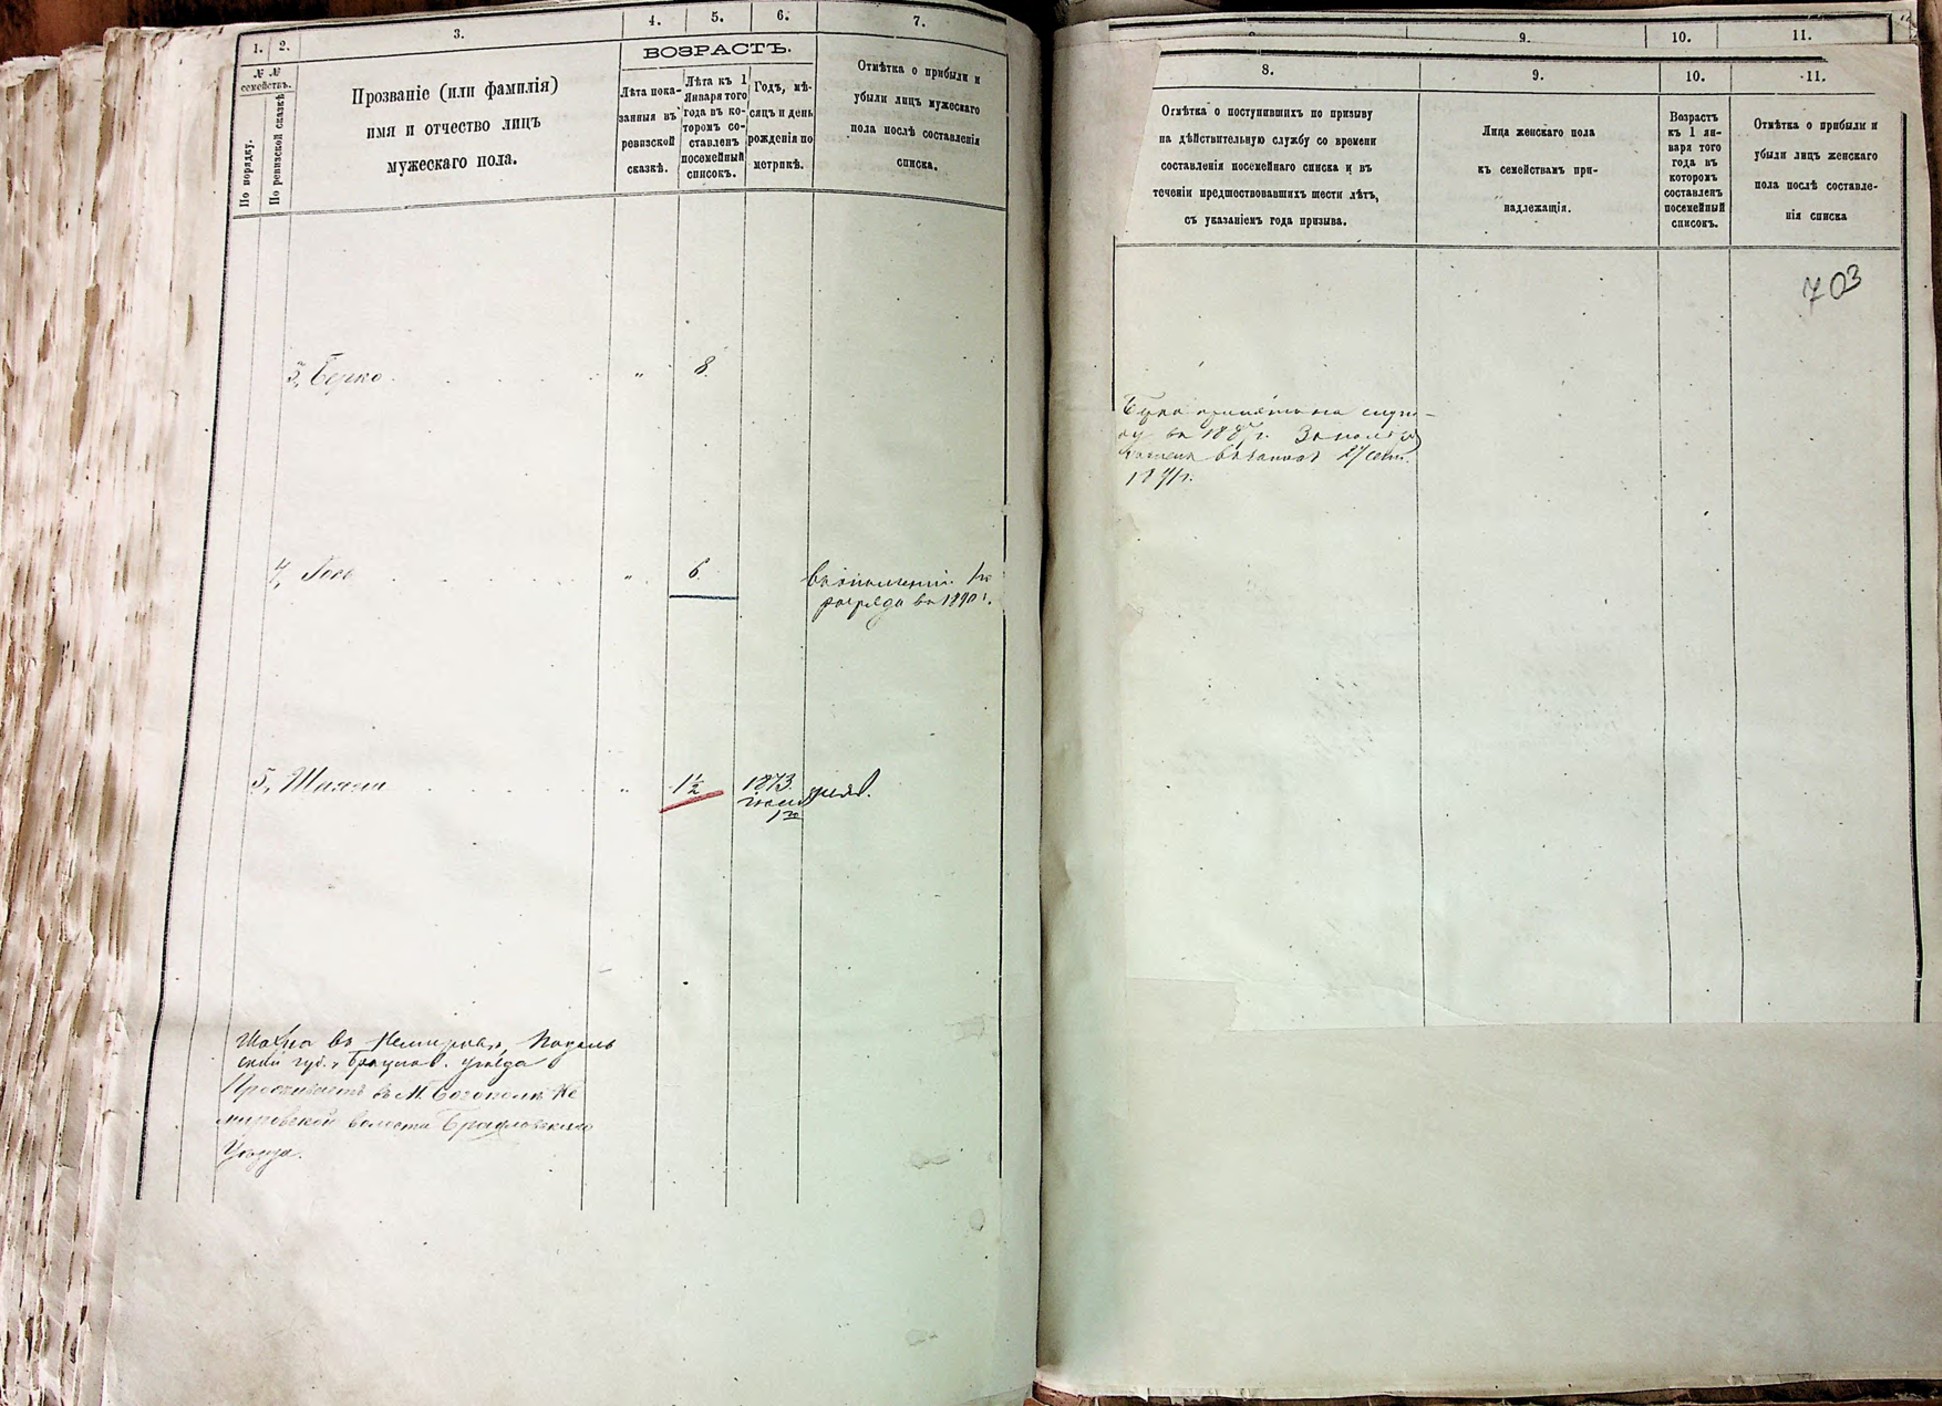 1.
2.
3.
4.
5.
6.
7.
№ №
семействъ.
По порядку.
По ревизской сказкѣ
Прозваніе (или фамилія)
имя и отчество лицъ
мужескаго пола.
ВОЗРАСТЪ.
Лѣта пока-
занныя въ
ревизской
сказкѣ.
Лѣта къ 1
Января того
года въ ко-
торомъ со-
ставленъ
посемейный
списокъ.
Годъ, мѣ-
сяцъ и день
рожденія по
метрикѣ.
Отмѣтка о прибыли и
убыли лицъ мужескаго
пола послѣ составленія
списка.
3, Берко . . . . . . „ 8.
4, . . . . . . „ 6.
въ ополченіи 1го
разряда въ 1890 г.
5, . . . . . . „ 1½
1873
Шахна въ Немировѣ, Подоль
ской губ., Брацлав. уѣзда
Проживаетъ въ М. Не
мировской волости Брацловскаго
Уѣзда.
9.
10.
11.
8.
9.
10.
11.
Отмѣтка о поступившихъ по призыву
на дѣйствительную службу со времени
составленія посемейнаго списка и въ
теченіи предшествовавшихъ шести лѣтъ,
съ указаніемъ года призыва.
Лица женскаго пола
къ семействамъ при-
надлежащія.
Возрастъ
къ 1 ян-
варя того
года въ
которомъ
составленъ
посемейный
списокъ.
Отмѣтка о прибыли и
убыли лицъ женскаго
пола послѣ составле-
нія списка
703
на служ-
бу въ
27 сент.